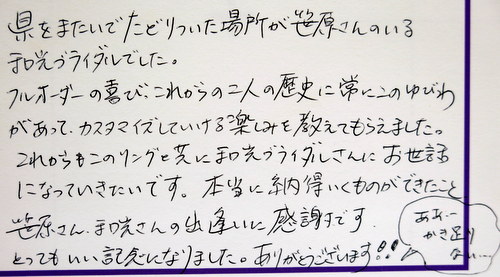 県をまたいでたどりついた場所が笹原さんのいる
和光ブライダルでした。
フルオーダーの喜び、これからの二人の歴史に常にこのゆびわ
があって、カスタマイズしていける楽しみを教えてもらえました。
これからもこのリングと共に和光ブライダルさんにお世話
になっていきたいです。本当に納得いくものができたこと
笹原さん、和光さんの出逢いに感謝です。
とってもいい記念になりました。ありがとうございます!!
あぁ…
かき足り
ない…